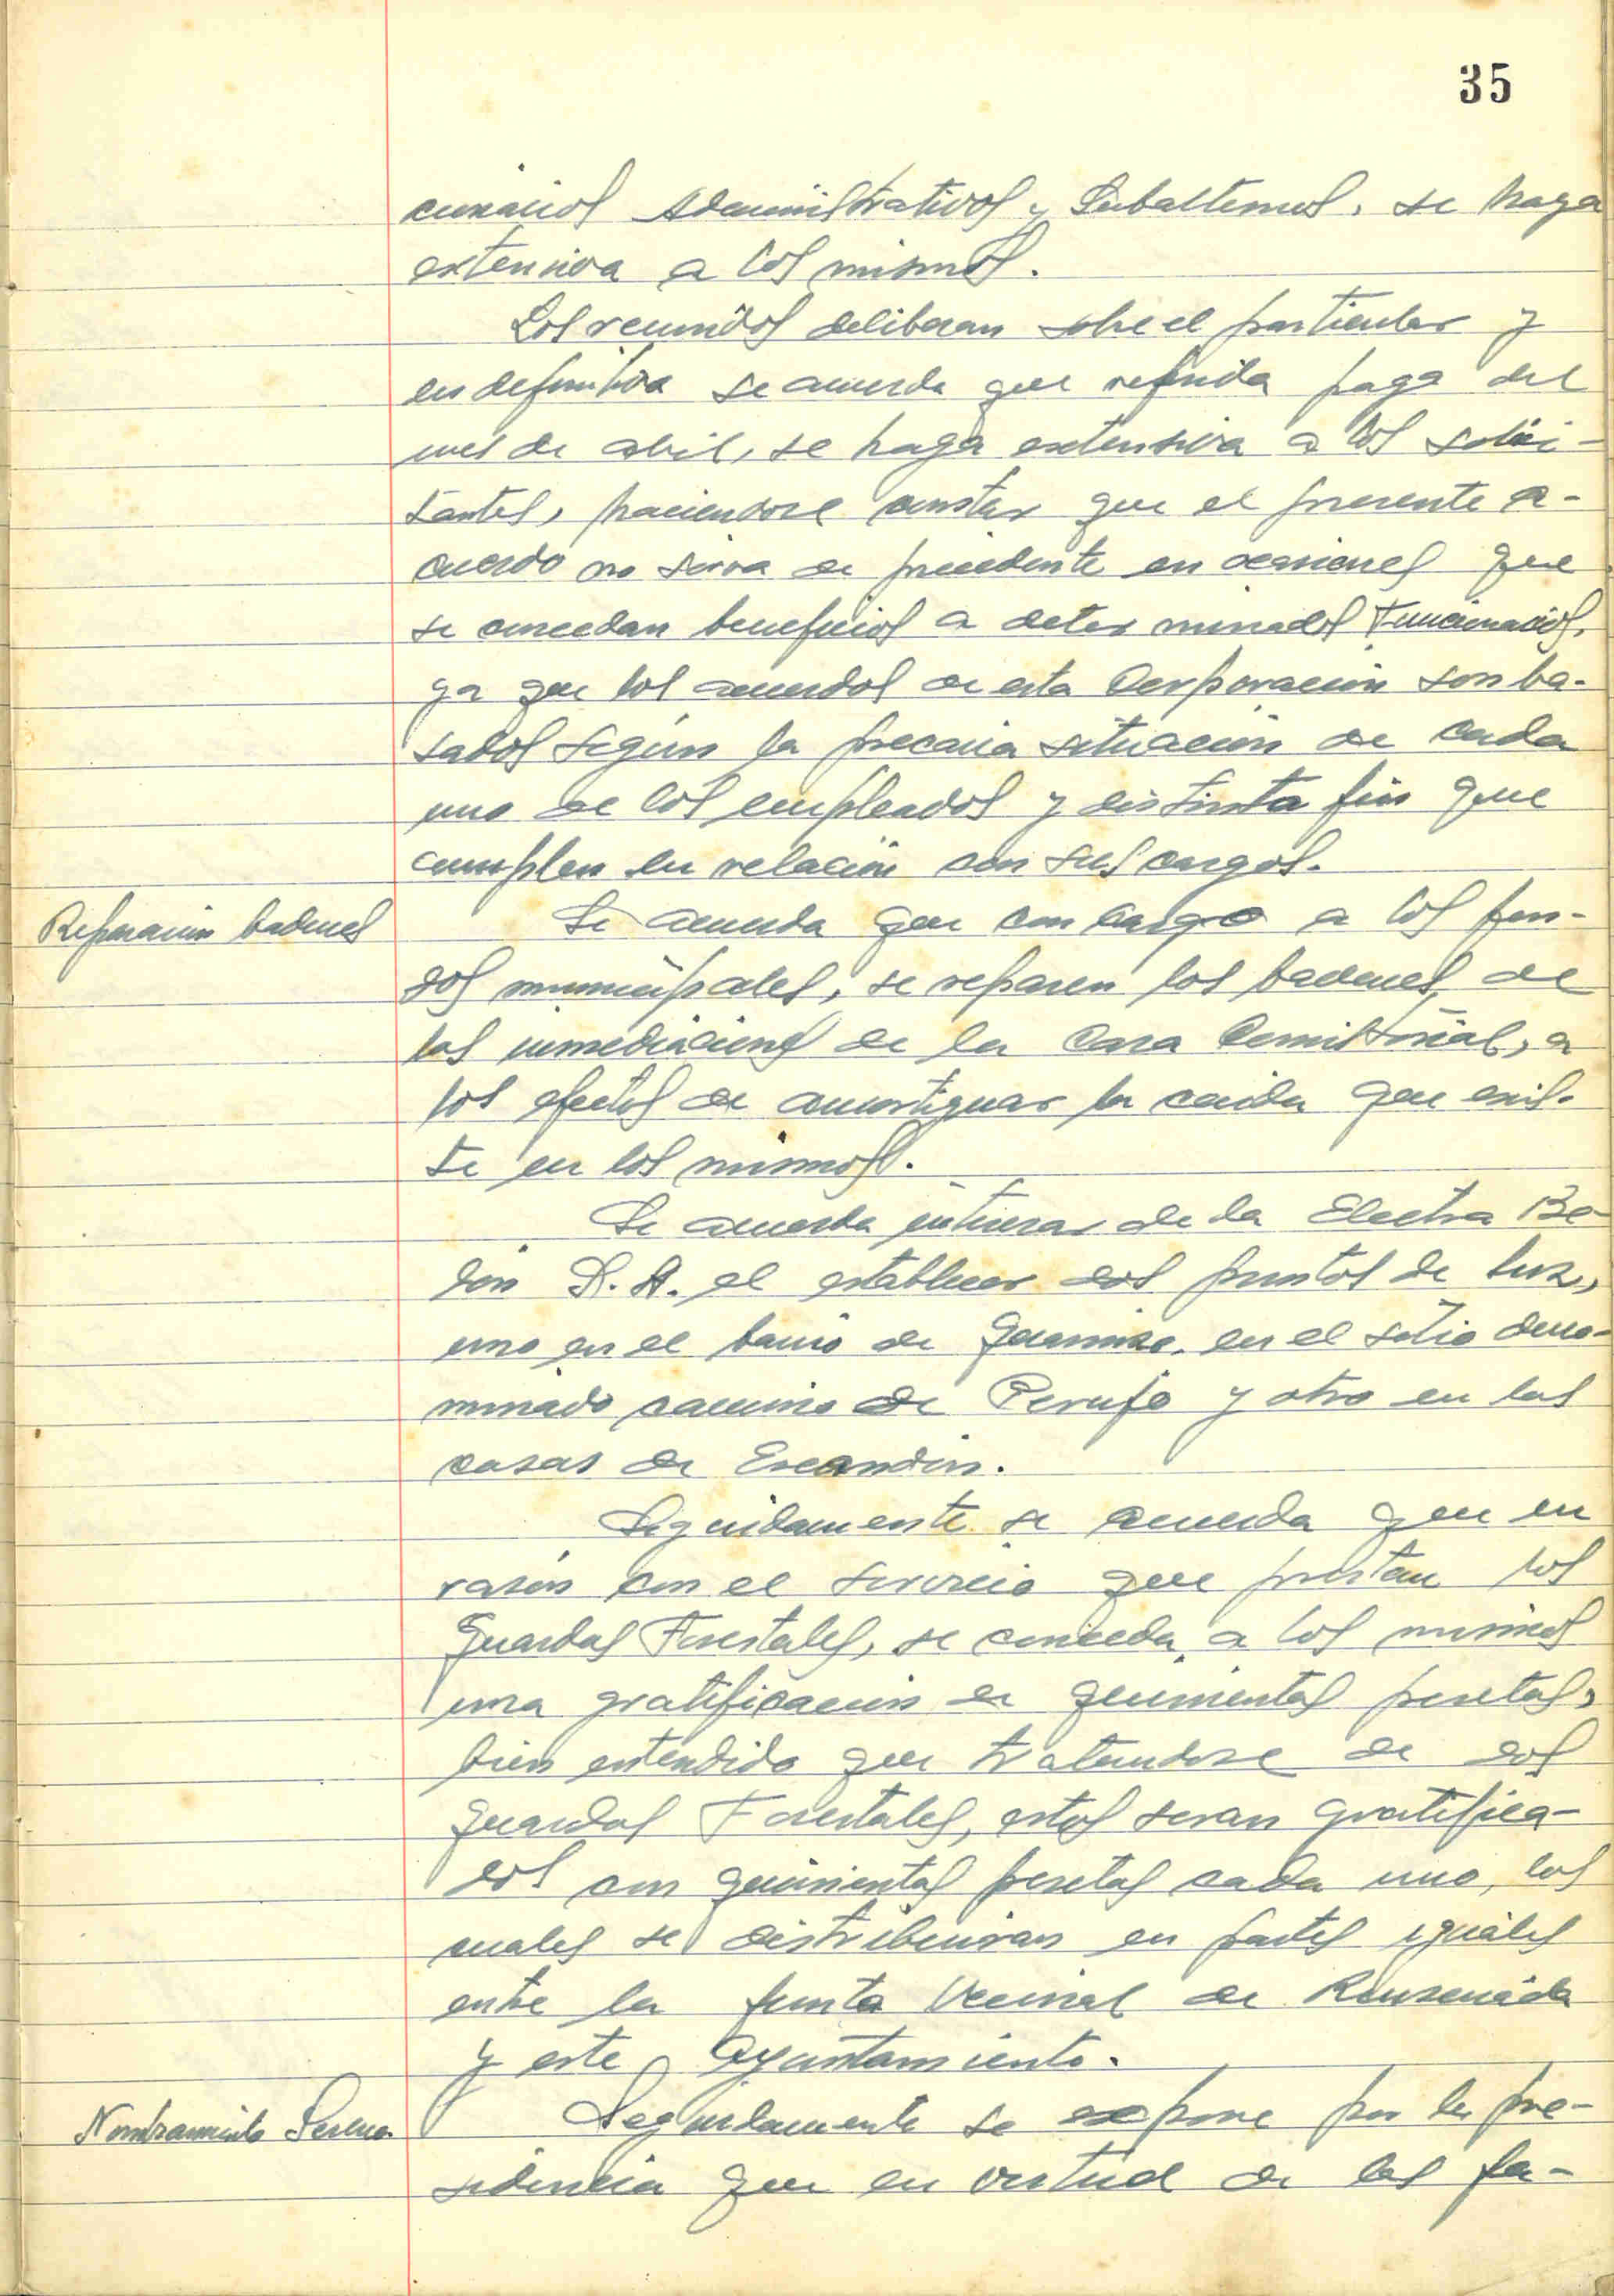 35
cionarios Administrativos y Subalternos, se haga
extensiva a los mismos.
Los reunidos deliberan sobre el particular y
en definitiva se acuerda que referida paga del
mes de abril, se haga extensiva a los solici-
tantes, haciendose constar que el presente a-
cuerdo no sirva de precedente en ocasiones que
se concedan beneficios a determinados Funcionarios,
ya que los acuerdos de esta Corporación son ba-
sados según la precaria situación de cada
uno de los empleados y distinta fin que
cumplen en relación con sus cargos.
Reparación badenes
Se acuerda que con cargo a los fon-
dos municipales, se reparen los badenes de
las inmediaciones de la Casa Consistorial, a
los efectos de amortiguar la caida que exis-
te en los mismos.
Se acuerda interesar de la Electra Be-
son S.A. el establecer dos puntos de luz,
uno en el barrio de Guarnizo, en el sitio deno-
minado camino de Perujo y otro en las
casas de Escandón.
Seguidamente se acuerda que en
rasón con el servicio que prestan los
Guardas Forestales, se conceda a los mismos
una gratificación de quinientas pesetas,
bien entendido que tratandose de dos
guardas Forestales, estos seran gratifica-
dos con quinientas pesetas cada uno, las
cuales se distribuiran en partes iguales
entre la Junta Vecinal de
y este Ayuntamiento.
Nombramiento Sereno
Seguidamente se expone por la pre-
sidencia que en virtud de las fa-